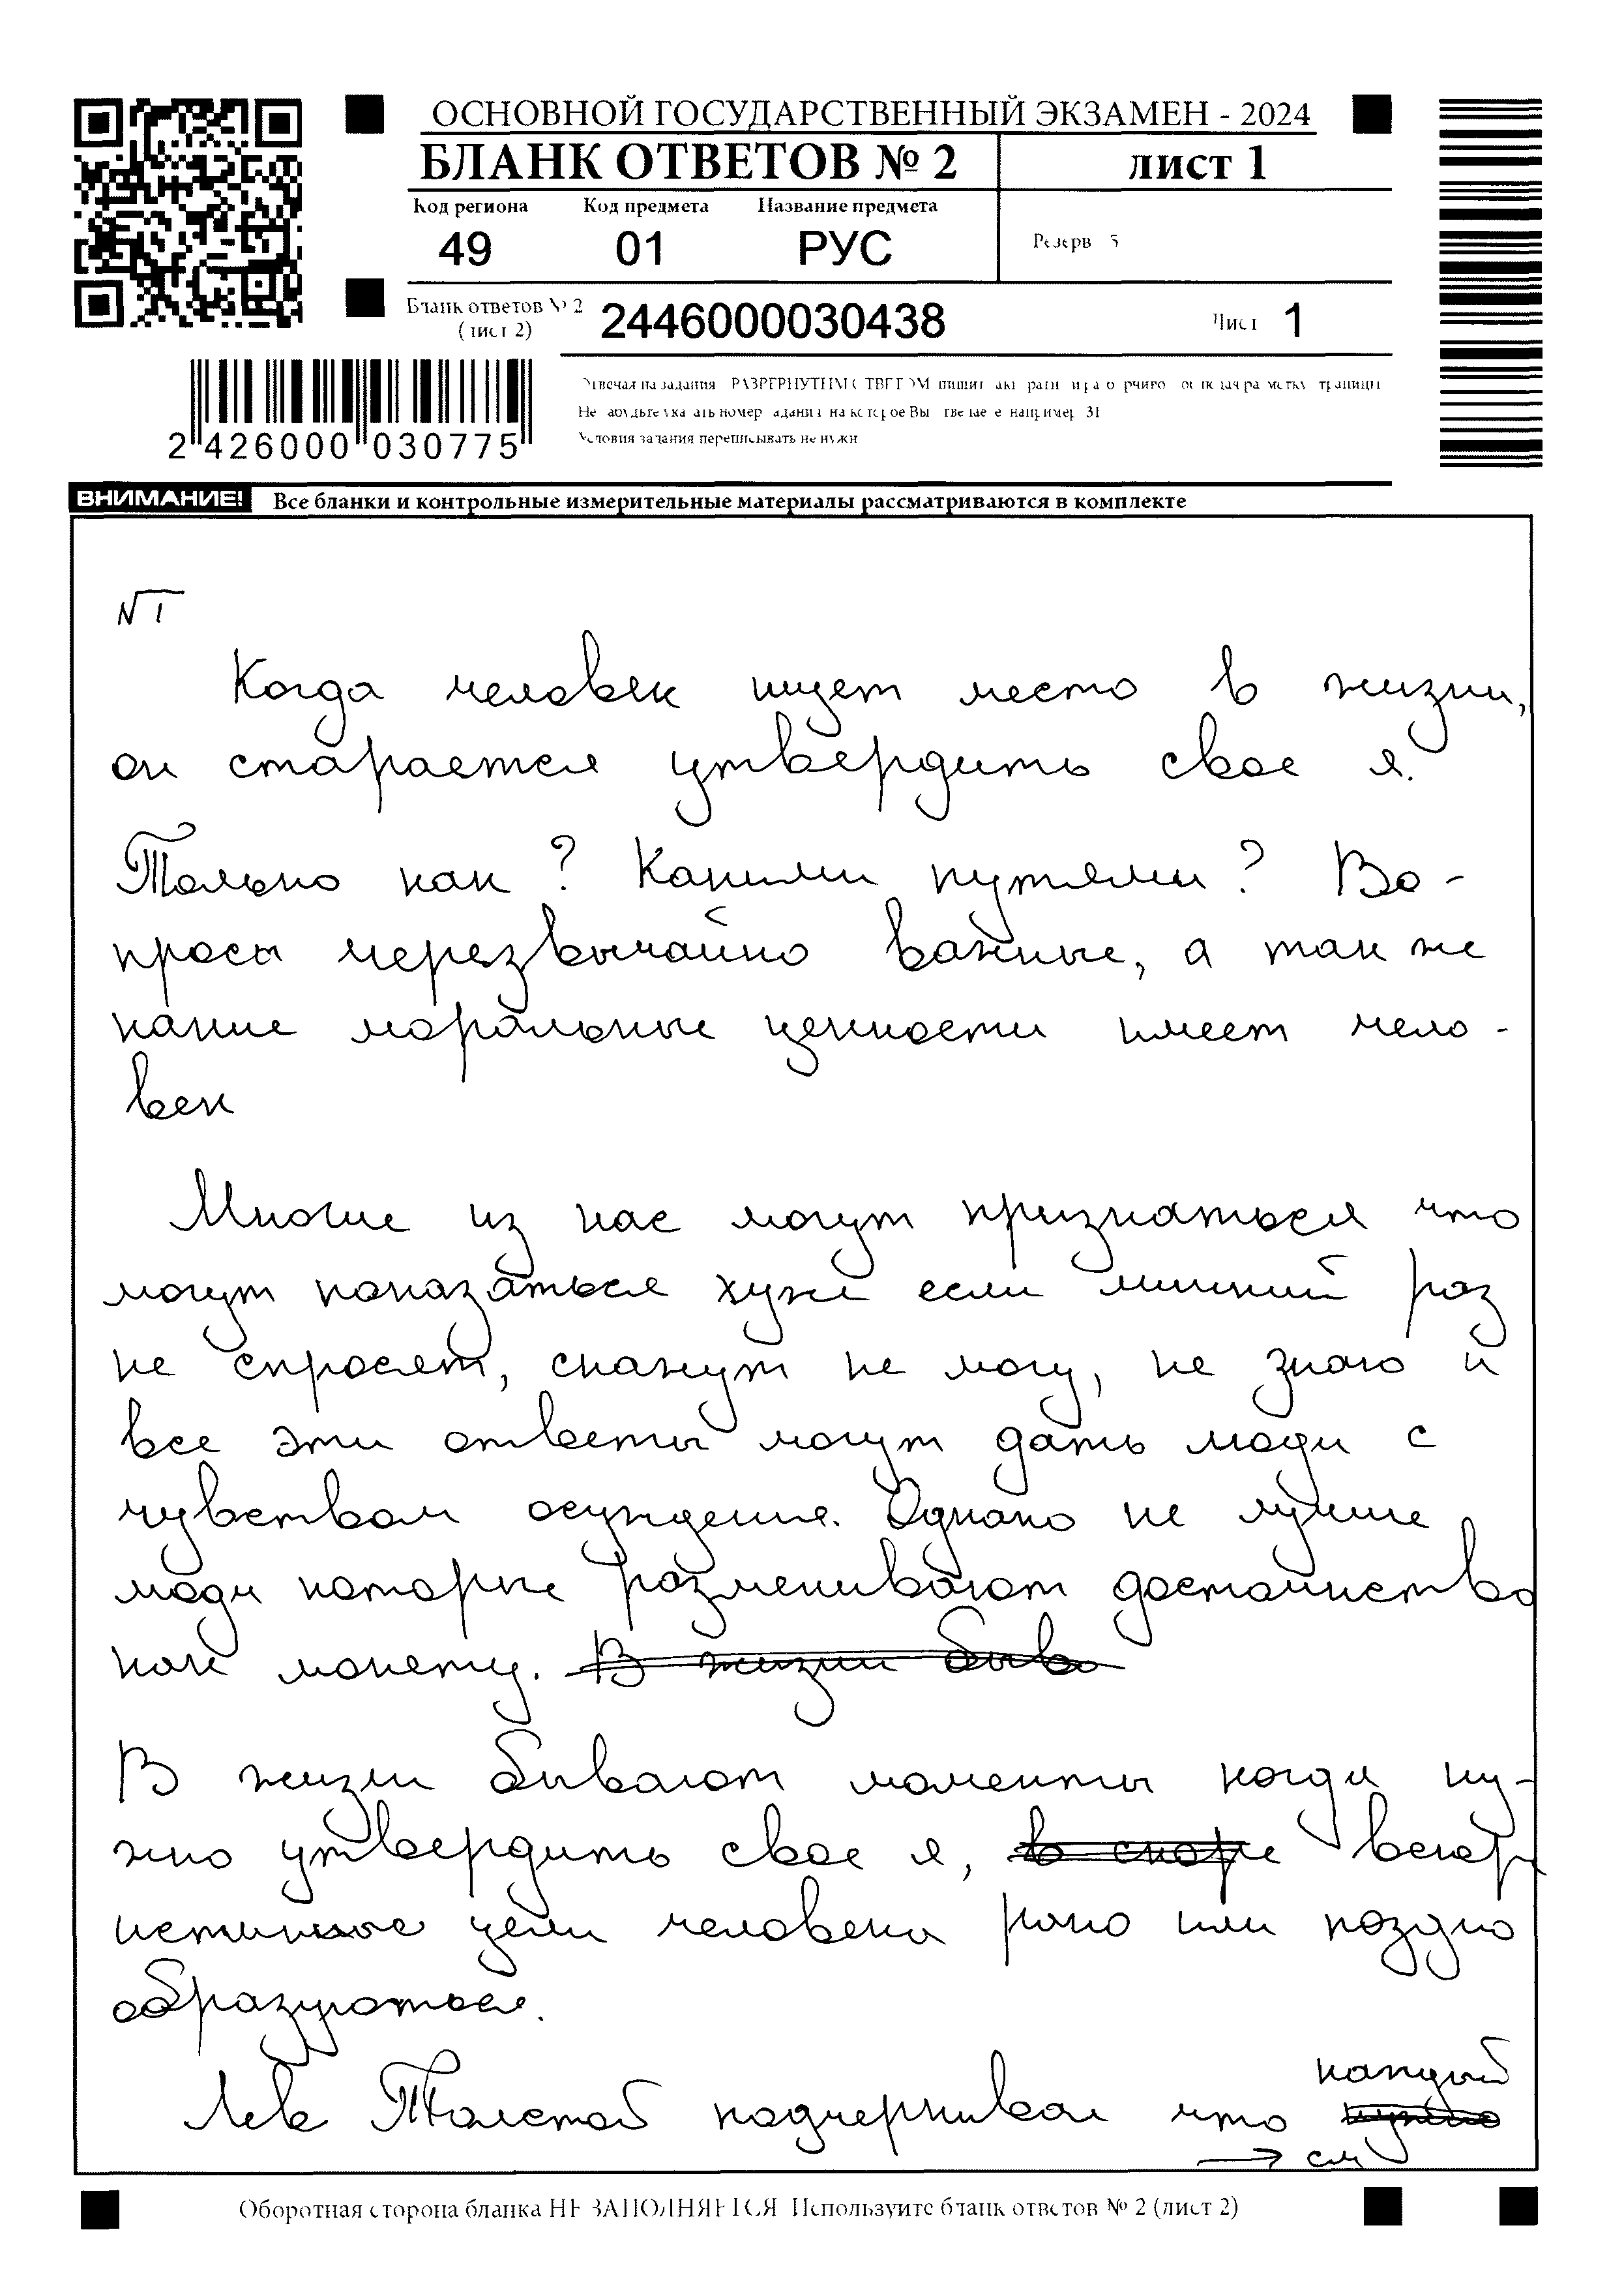 ОСНОВНОЙ ГОСУДАРСТВЕННЫЙ ЭКЗАМЕН - 2024
БЛАНК ОТВЕТОВ № 2 лист 1
Код региона Код предмета Название предмета
49 01 РУС Резерв 5
Бланк ответов № 2 (лист 2) 2446000030438 Лист 1
2 426000 030775
Условия задания переписывать не нужн
ВНИМАНИЕ! Все бланки и контрольные измерительные материалы рассматриваются в комплекте
№1
Когда человек ищет место в жизни,
он старается утвердить свое я.
Только как? Какими путями? Во-
просы черезвычайно важные, а так же
какие моральные ценности имеет чело-
век
Многие из нас могут признаться что
могут показаться хуже если лишний раз
не спросят, скажут не могу, не знаю и
все эти ответы могут дать люди с
чувством осуждения. Однако не лучше
люди которые разменивают достоинство
как монету. В жизни быва
В жизни бывают моменты когда ну-
жно утвердить свое я, в споре
истинные цели человека рано или поздно
образуються.
каждый
Лев Толстой подчеркивал что
→ см
Оборотная сторона бланка НЕ ЗАПОЛНЯЕТСЯ Используйте бланк ответов № 2 (лист 2)